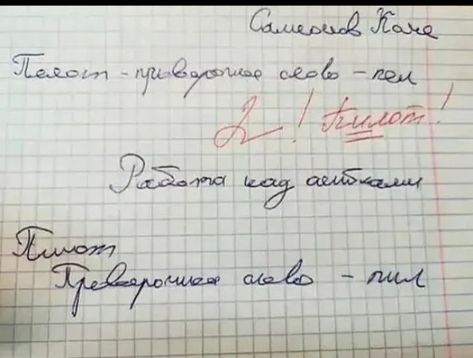 Самсонов Коле
Пелот - приверочное слово - пел
2! Пилот!
Работа над аибками
Пилот
Преверочное слово - пил